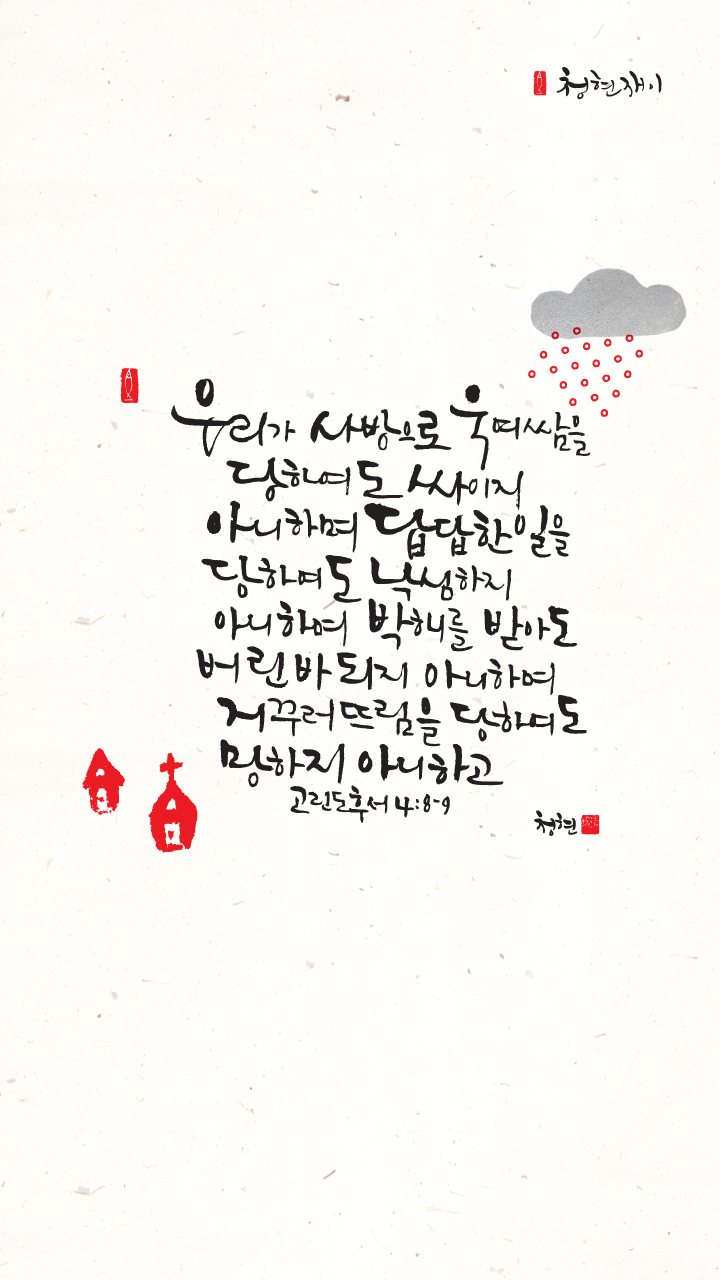 청현재이
우리가 사방으로 욱여쌈을
당하여도 싸이지
아니하며 답답한 일을
당하여도 낙심하지
아니하며 박해를 받아도
버린 바 되지 아니하며
거꾸러뜨림을 당하여도
망하지 아니하고
고린도후서 4:8-9
청현